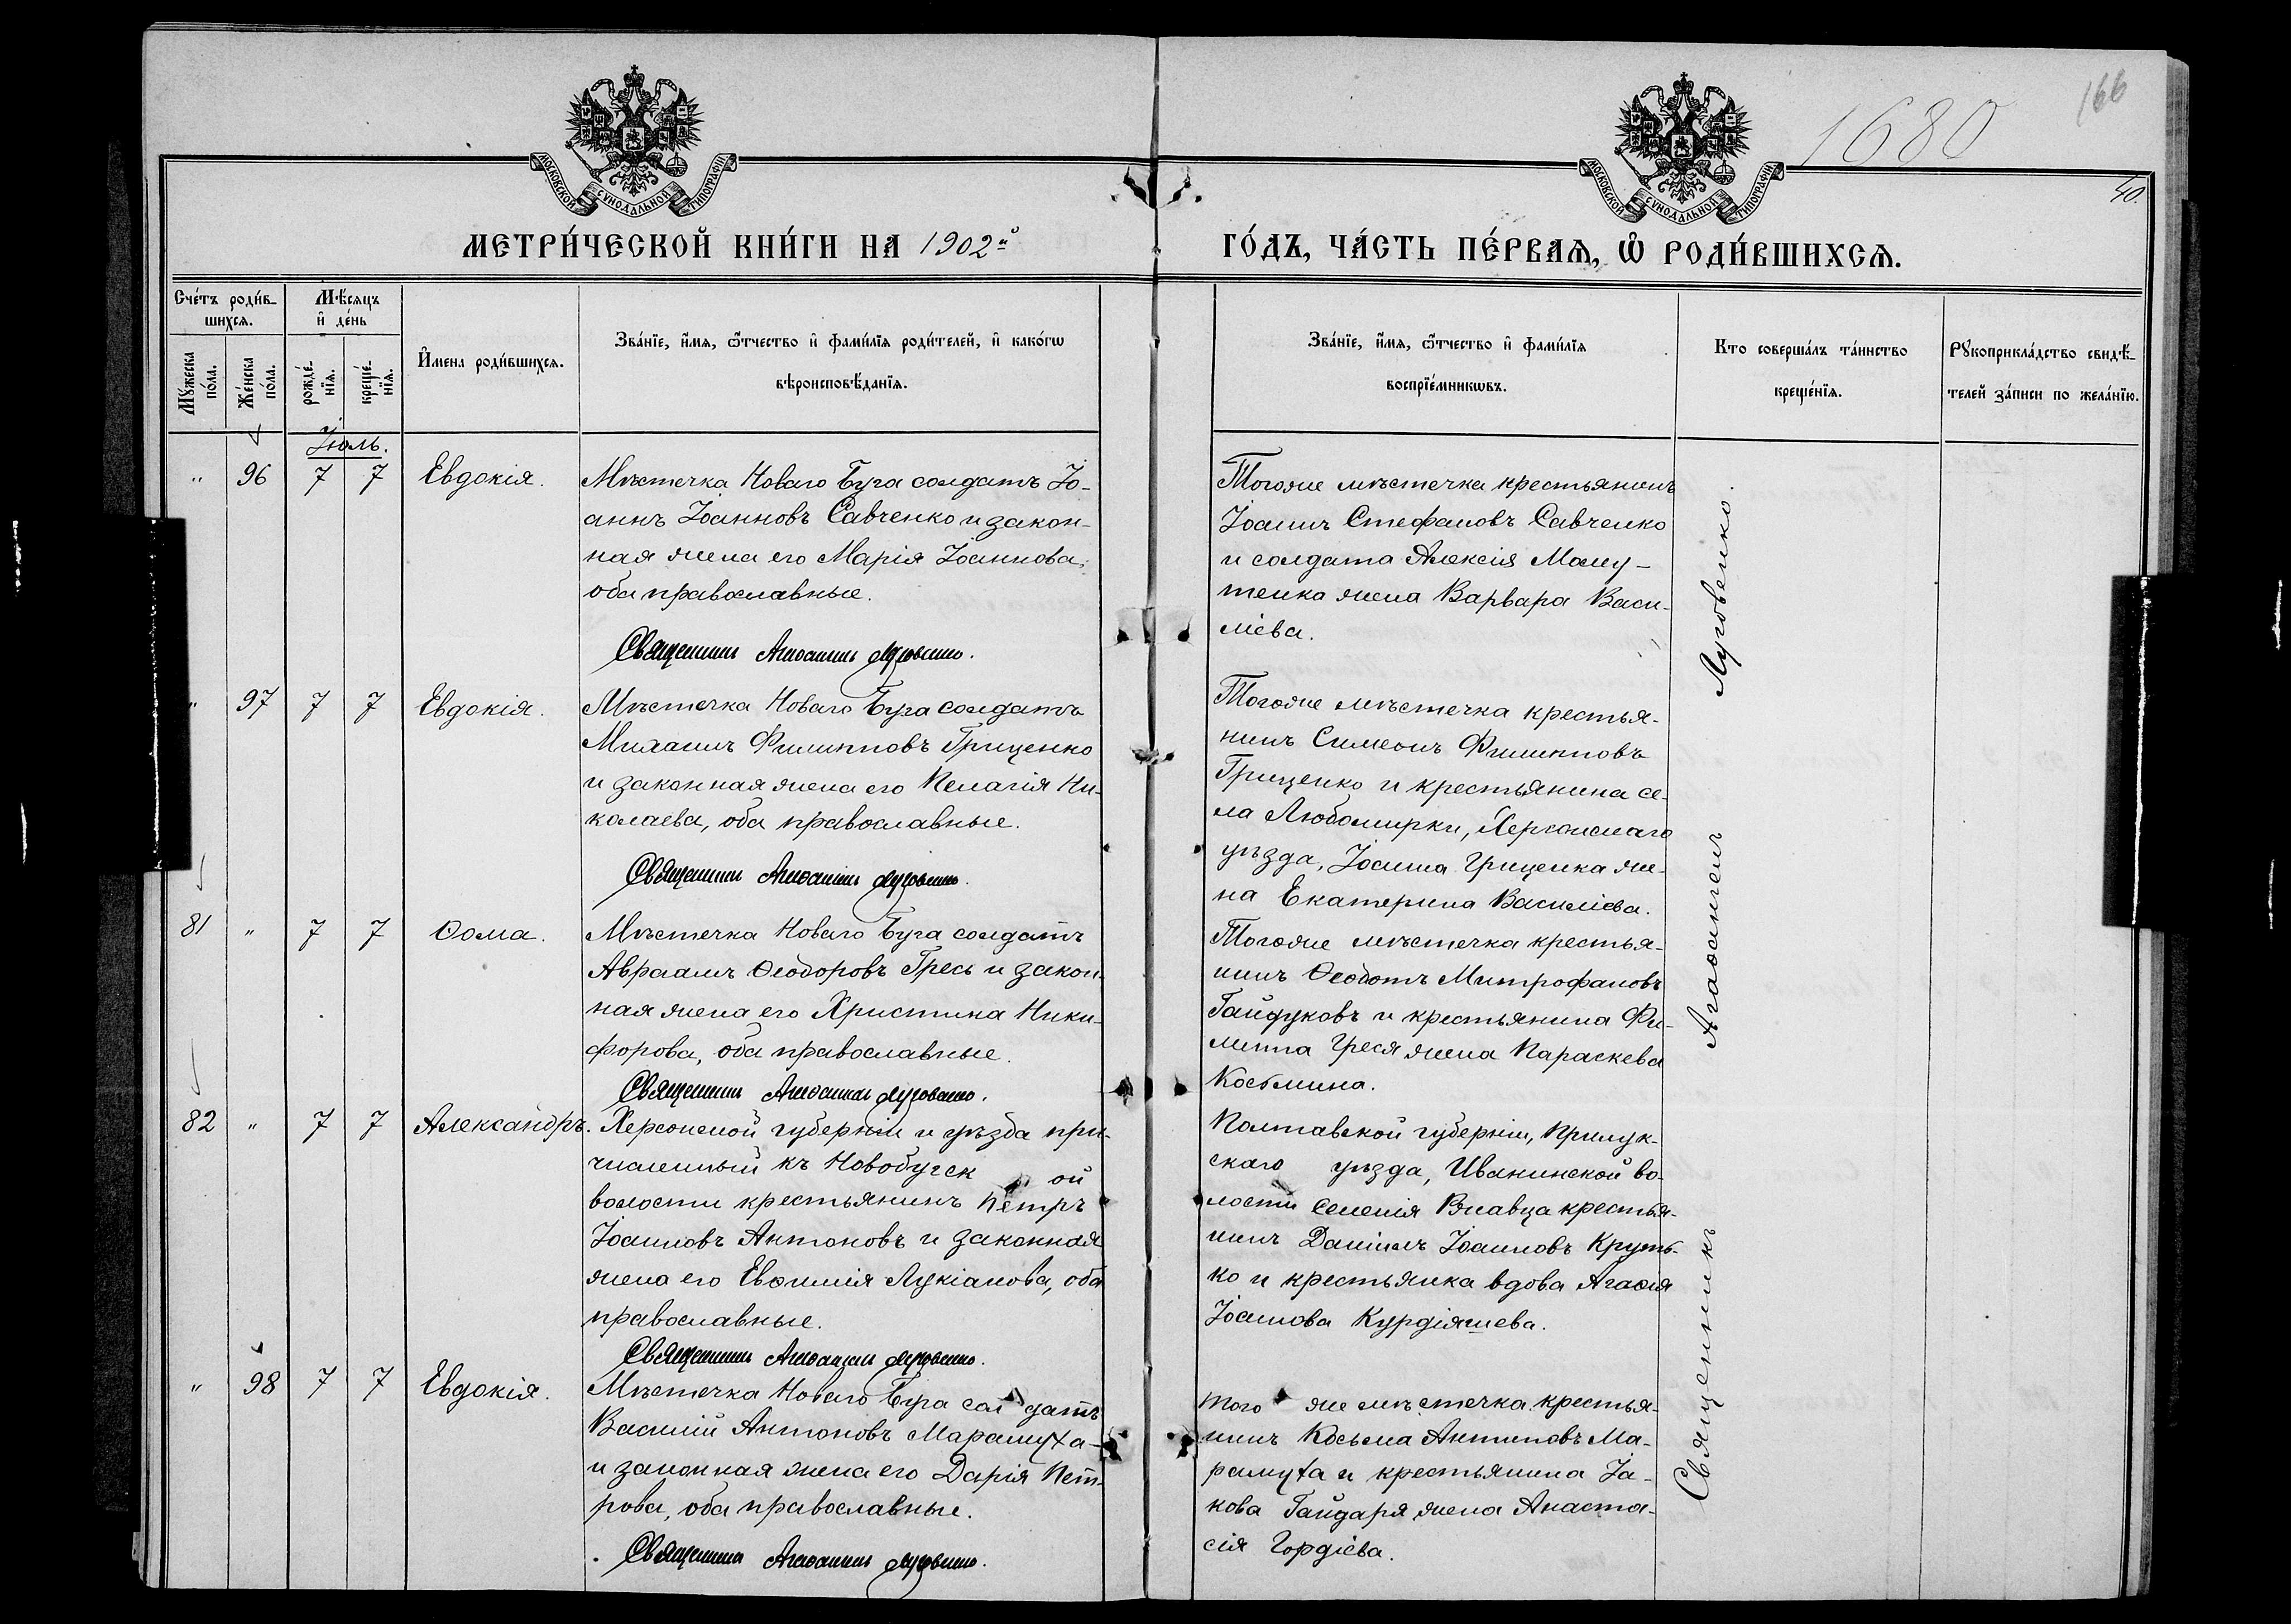 166
1680
40.
МОСКОВСКОЙ СѴНОДАЛЬНОЙ ТИПОГРАФІИ
МОСКОВСКОЙ СѴНОДАЛЬНОЙ ТИПОГРАФІИ
МЕТРИ́ЧЕСКОЙ КНИ́ГИ НА 1902й
ГО́ДЪ, ЧА́СТЬ ПЕ́РВАѦ, Ѡ҆ РОДИ́ВШИХСѦ.
Сче́тъ роди́в-
шихсѧ.
Мꙋ́жеска по́ла.
Же́нска по́ла.
Мѣ́сѧцъ
и҆ де́нь
рожде́-нїѧ.
креще́-нїѧ.
И҆мена роди́вшихсѧ.
Зва́нїе, и҆́мѧ, ѻ҆́тчество и҆ фами́лїѧ роди́телей, и҆ како́гѡ
вѣроисповѣ́данїѧ.
Зва́нїе, и҆́мѧ, ѻ҆́тчество и҆ фами́лїѧ
воспрїе́мникѡвъ.
Кто соверша́лъ та́инство
креще́нїѧ.
Рꙋкоприкла́дство свидѣ́-
телей за́писи по жела́нїю.
Іюль.
" 96 7 7 Евдокія.
Мѣстечка Новаго Буга солдатъ Іо-
аннъ Іоанновъ Савченко и закон-
ная жена его Марія Іоаннова,
оба православные.
Священникъ Агаѳангелъ Луговенко.
Тогоже мѣстечка крестьянинъ
Іоаннъ Стефановъ Савченко
и солдата Алексія Малу-
тенка жена Варвара Васи-
ліева.
" 97 7 7 Евдокія.
Мѣстечка Новаго Буга солдатъ
Михаилъ Филипповъ Гриценко
и законная жена его Пелагія Ни-
колаева, оба православные.
Священникъ Агаѳангелъ Луговенко.
Тогоже мѣстечка крестья-
нинъ Симеонъ Филипповъ
Гриценко и крестьянина се-
ла Любомирки, Херсонскаго
уѣзда, Іоанна Гриценка же-
на Екатерина Василіева.
81 " 7 7 Ѳома.
Мѣстечка Новаго Буга солдатъ
Авраамъ Ѳеодоровъ Гресь и закон-
ная жена его Христина Ники-
форова, оба православные.
Священникъ Агаѳангелъ Луговенко.
Тогоже мѣстечка крестья-
нинъ Ѳеодотъ Митрофановъ
Гайдуковъ и крестьянина Фи-
липпа Греся жена Параскева
Косьмина.
82 " 7 7 Александръ.
Херсонской губерніи и уѣзда при-
численный къ Новобугск ой
волости крестьянинъ Петръ
Іоанновъ Антоновъ и законная
жена его Евѳимія Лукіанова, оба
православные.
Священникъ Агаѳангелъ Луговенко.
Полтавской губерніи, Прилук-
скаго уѣзда, Иванинской во-
лости селенія крестья-
нинъ Даніилъ Іоанновъ Круть-
ко и крестьянка вдова Агаѳія
Іоаннова Курдіяшева.
" 98 7 7 Евдокія.
Мѣстечка Новаго Буга сол датъ
Василій Антоновъ Марамуха
и законная жена его Дарія Пет-
рова, оба православные.
Священникъ Агаѳангелъ Луговенко.
Того же мѣстечка крестья-
нинъ Косьма Антиповъ Ма-
рамуха и крестьянина Іа-
кова Гайдаря жена Анаста-
сія Гордіева.
Священникъ Агаѳангелъ Луговенко.